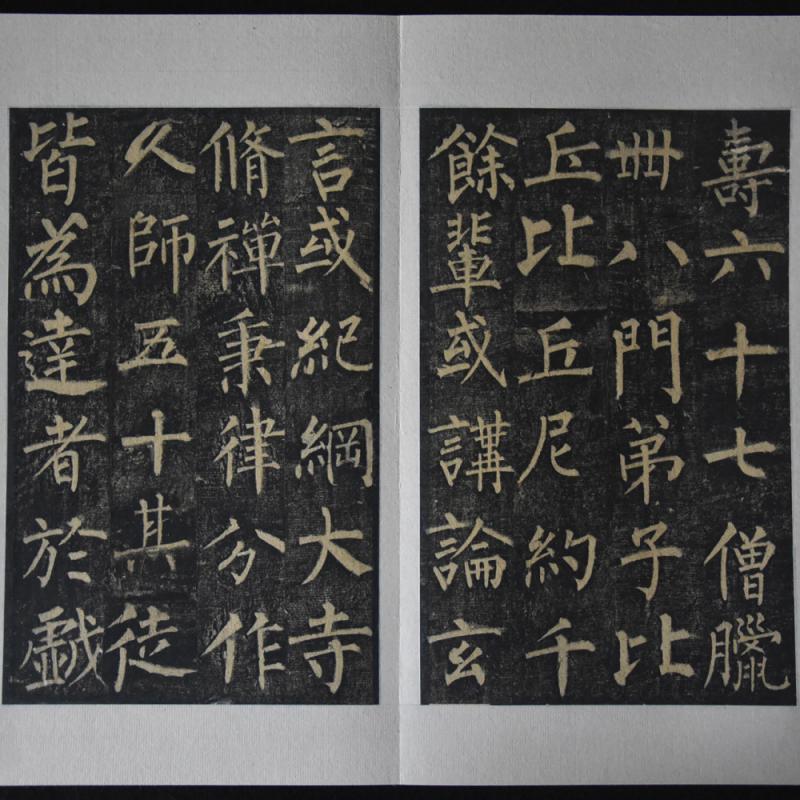 壽六十七僧臘
卌八門弟子比
丘比丘尼約千
餘輩或講論玄
言或紀綱大寺
脩禪秉律分作
人師五十其徒
皆為達者於戯